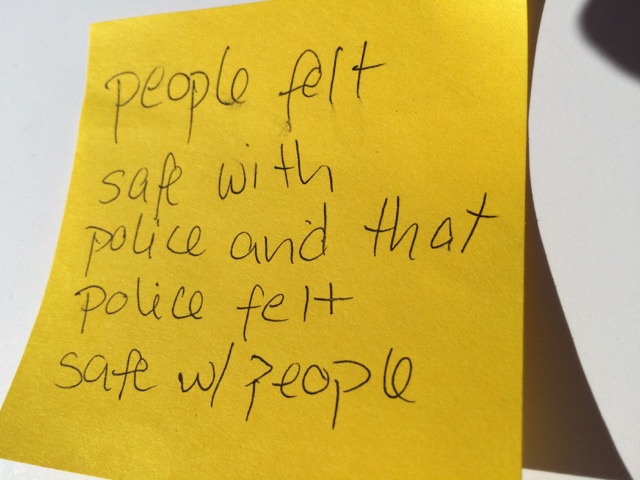 people felt
safe with
police and that
police felt
safe w/ people